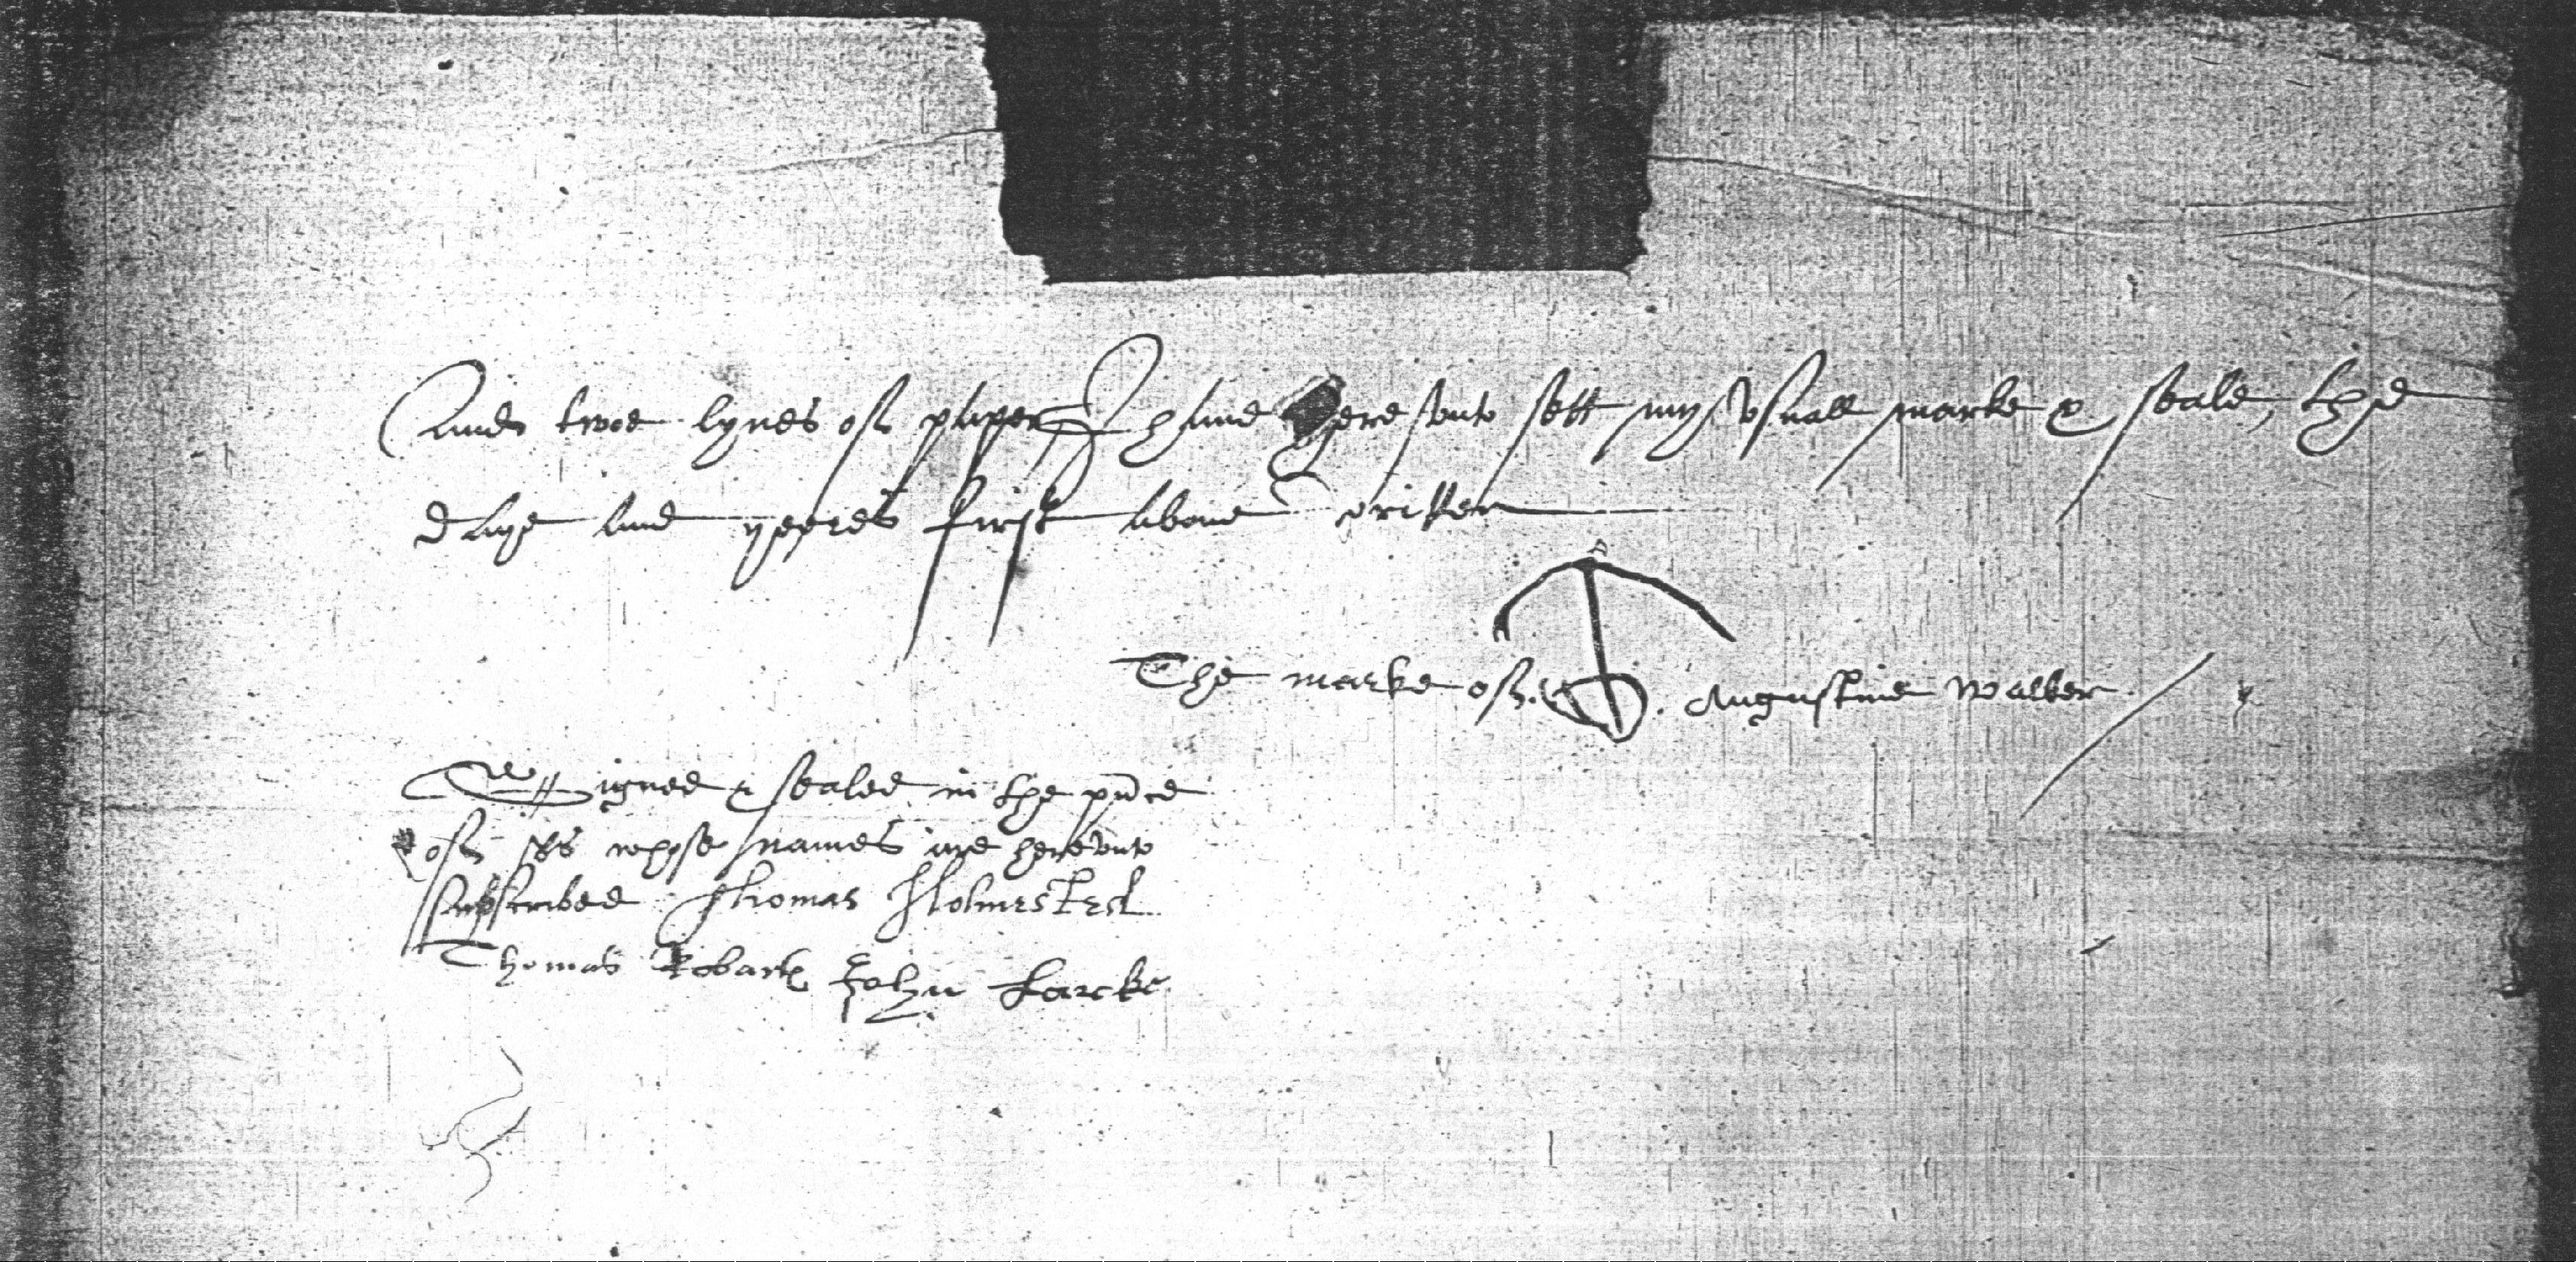 And twoe lynes of paper I have here vnto sett my vsuall marke & seale, the
daye and yeeres first above written
The marke of. . Augustine Walker
Signed & sealed in the pñce
of vs whose names are herevnto
subscribed Thomas Holmested
Thomas Robarts John Larcke